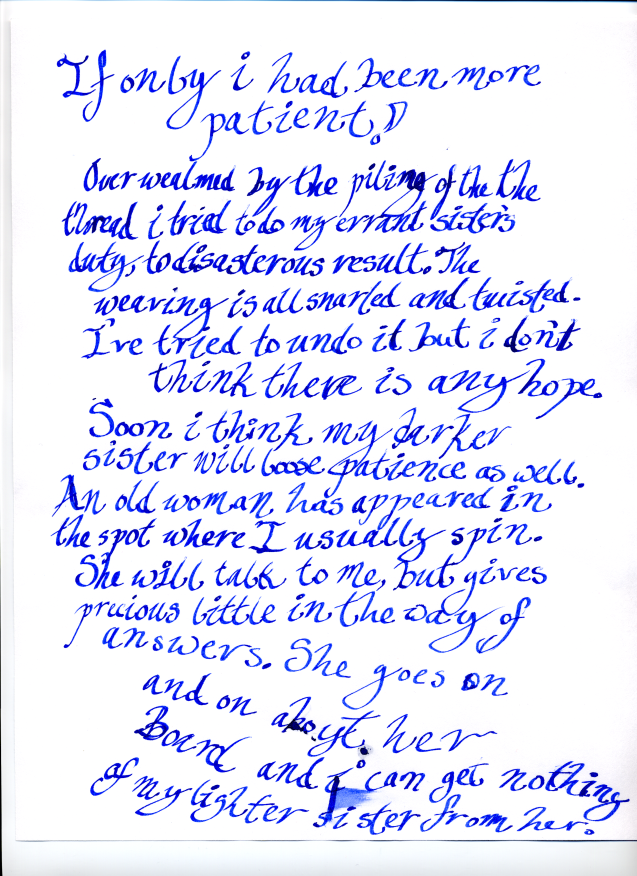 If only i had been more
patient!
Overwealmed by the piling of the the
thread i tried to do my errant sister's
duty, to disasterous result. The
weaving is all snarled and twisted.
I've tried to undo it but i don't
think there is any hope.
Soon i think my darker
sister will loose patience as well.
An old woman has appeared in
the spot where I usually spin.
She will talk to me, but gives
precious little in the way of
answers. She goes on
and on about her
Board and i can get nothing
of my lighter sister from her.